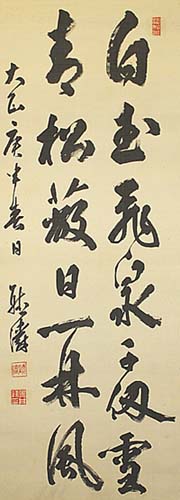 白玉飛泉千仭雪
青松蔽日一林風
大正庚申春日